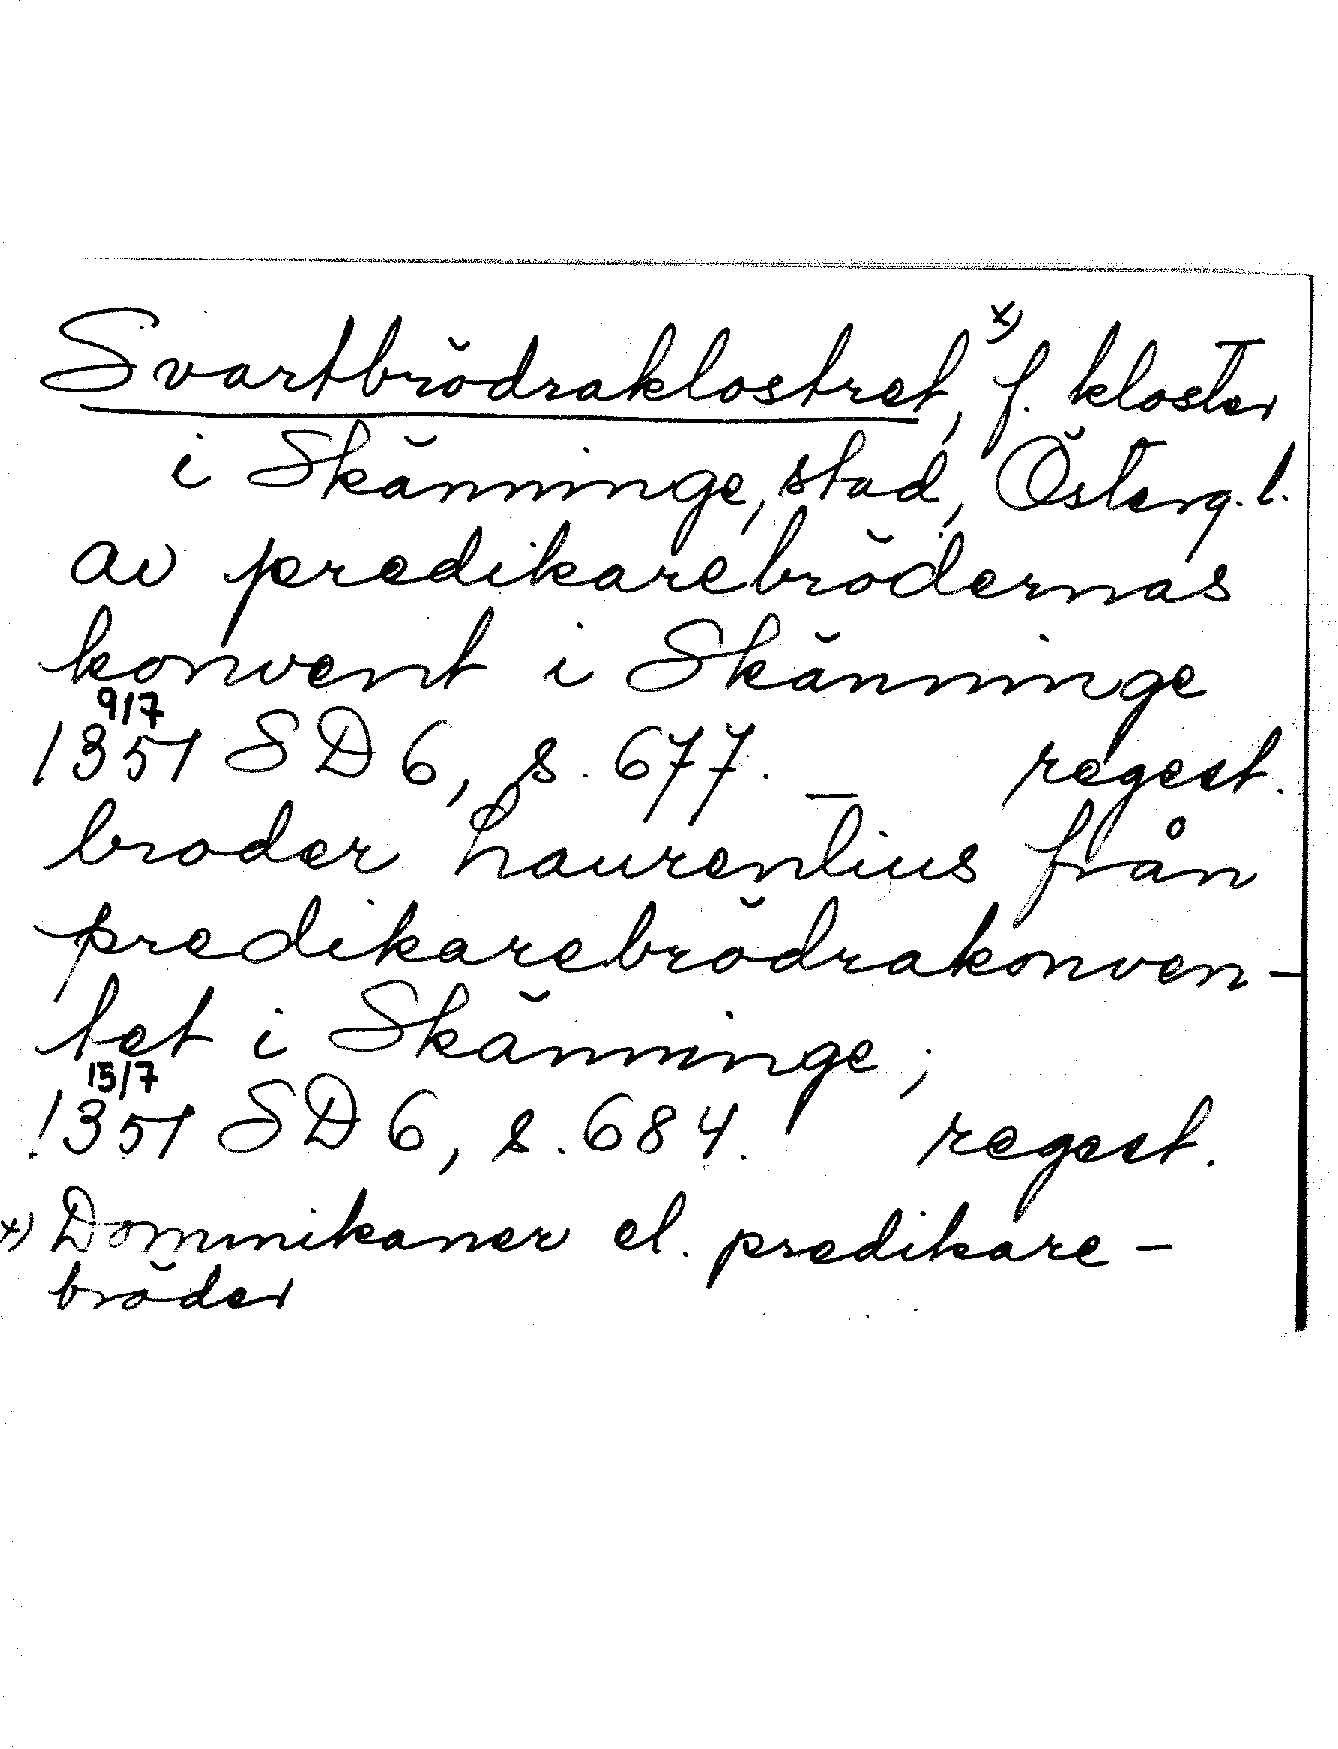 Svartbrödraklostret, x) f. kloster
i Skänninge, stad, Österg. l.
av predikarebrödernas
konvent i Skänninge
9/7
1351 SD 6, s. 677. _ regest.
broder Laurentius från
predikarebrödrakonven-
tet i Skänninge;
15/7
1351 SD 6, s. 684. regest.
x) Dominikaner el. predikare-
bröder